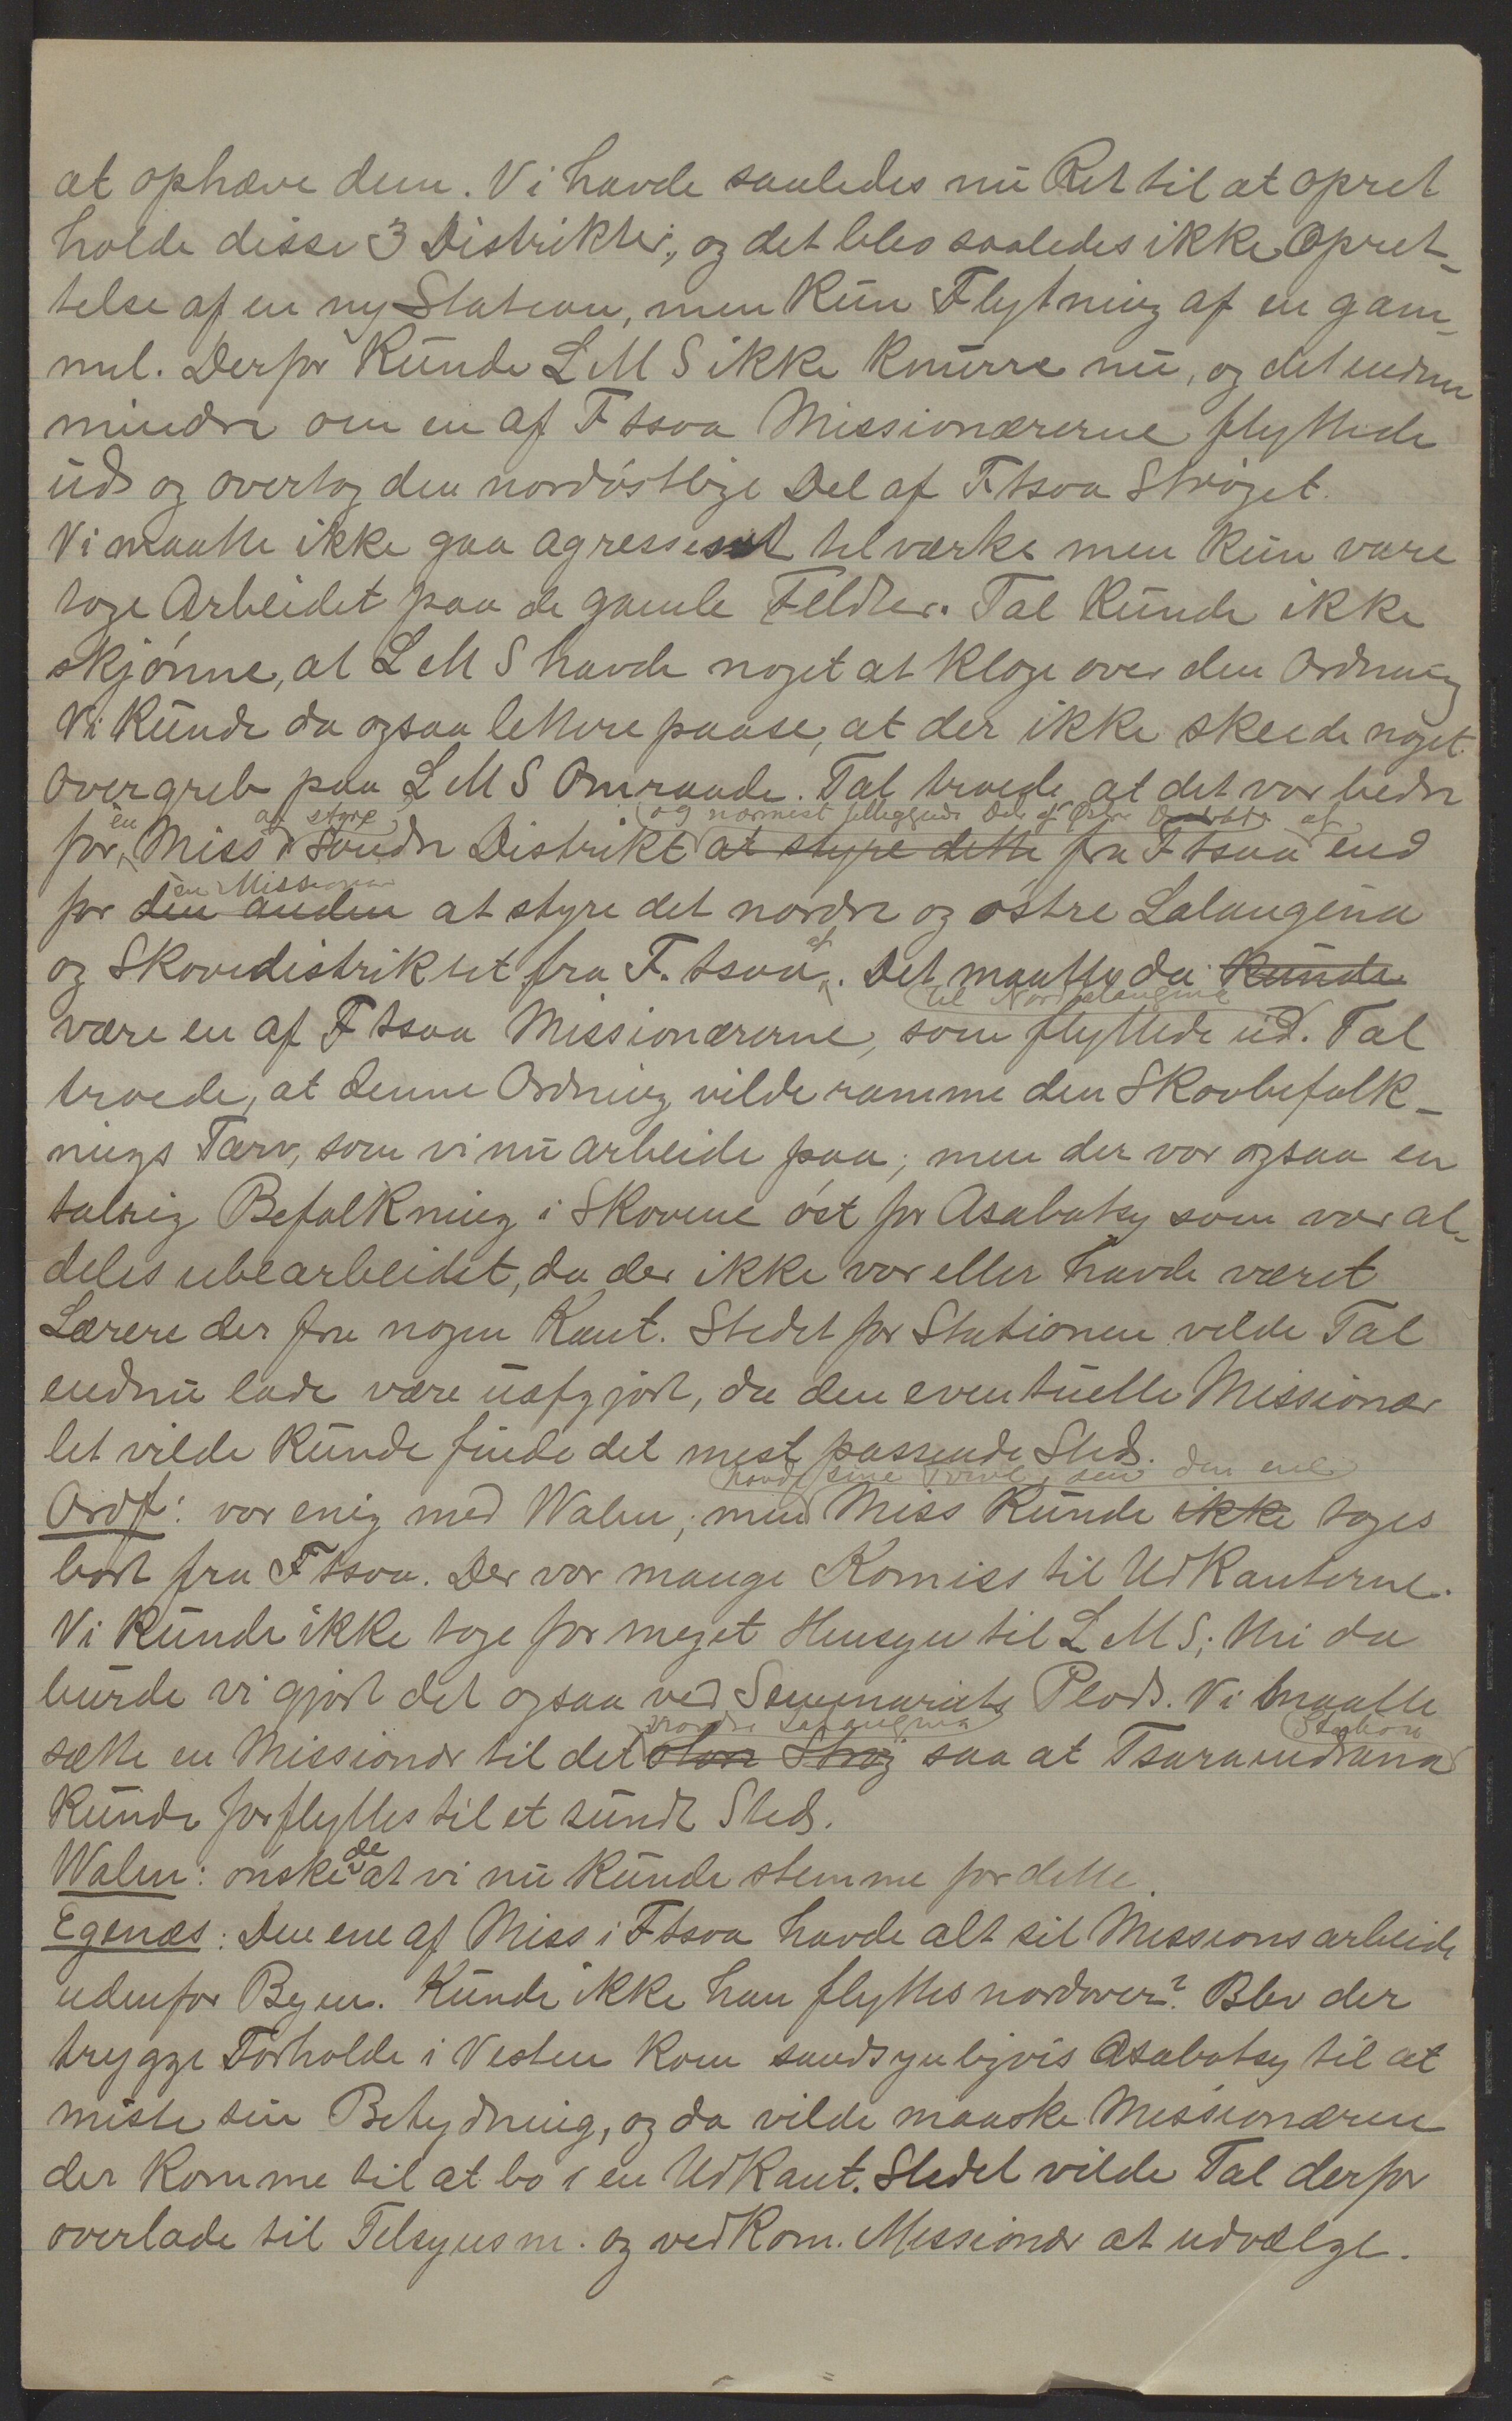 at ophæve dem. Vi havde saaledes nu Ret til at opret
holde disse 3 Distrikter, og det blev saaledes ikke Opret-
telse af en ny Station, men kun Flytning af en gam-
mel. Derfor kunde L M S ikke knurre nu, og det endnu
mindre om en af F tsoa Missionærerne flyttede
ud og overtog den nordøstlige Del af F. tsoa Strøget.
Vi maatte ikke gaa agressivt tilværks men kun vare
tage Arbeidet paa de gamle Feldter. Tal kunde ikke
skjønne, at L M S havde noget at klage over den Ordning
Vi kunde da ogsaa lettere paase, at der ikke skeede noget
Overgreb paa L M S Omraade. Tal troede, at det var bedre
en at styre og nærmest tilliggende Del af Østre af
for Miss Søndre Distrikt at styre dette fra F tsoa end
en Missionær
for den anden at styre det nordre og østre Lalangina
og Skovdistriktet fra F. tsoa af. Det maatte da kunde
til Nordlalangina
være en af F tsoa Missionærerne, som flyttede ud. Tal
troede, at denne Ordning vilde ramme den Skovbefolk-
nings Tarv, som vi nu arbeide paa; men der var ogsaa en
talrig Befolkning i Skovene øst for Asabotsy som var al-
deles ubearbeidet, da der ikke var eller havde været
Lærere der fra nogen Kant. Stedet for Stationen vilde Tal
endnu lade være uafgjort, da den eventuelle Missionær
let vilde kunde finde det mest passende Sted.
havde sine Tvivl, om den ene
Ordf: var enig med Walen; men Miss kunde ikke tages
bort fra F tsoa. Der var mange Komiss til Udkanterne.
Vi kunde ikke tage for meget Hensyn til L M S; thi da
burde vi gjort det ogsaa ved Seminariets Plads. Vi maatte
nordre Lalangina Station
sætte en Missionær til det store Strøg saa at Tsaraindrana
kunde forflyttes til et sundt Sted.
Walen: ønskede at vi nu kunde stemme for dette.
Egenæs: Den ene af Miss i F tsoa havde alt sit Missionsarbeide
udenfor Byen. Kunde ikke han flyttes nordover? Blev der
trygge Forholde i Vesten kom sandsynligvis Asabotsy til at
miste sin Betydning, og da vilde maaske Missionæren
der komme til at bo i en Udkant. Stedet vilde Tal derfor
overlade til Tilsynsm. og vedkom. Missionær at udvælge.